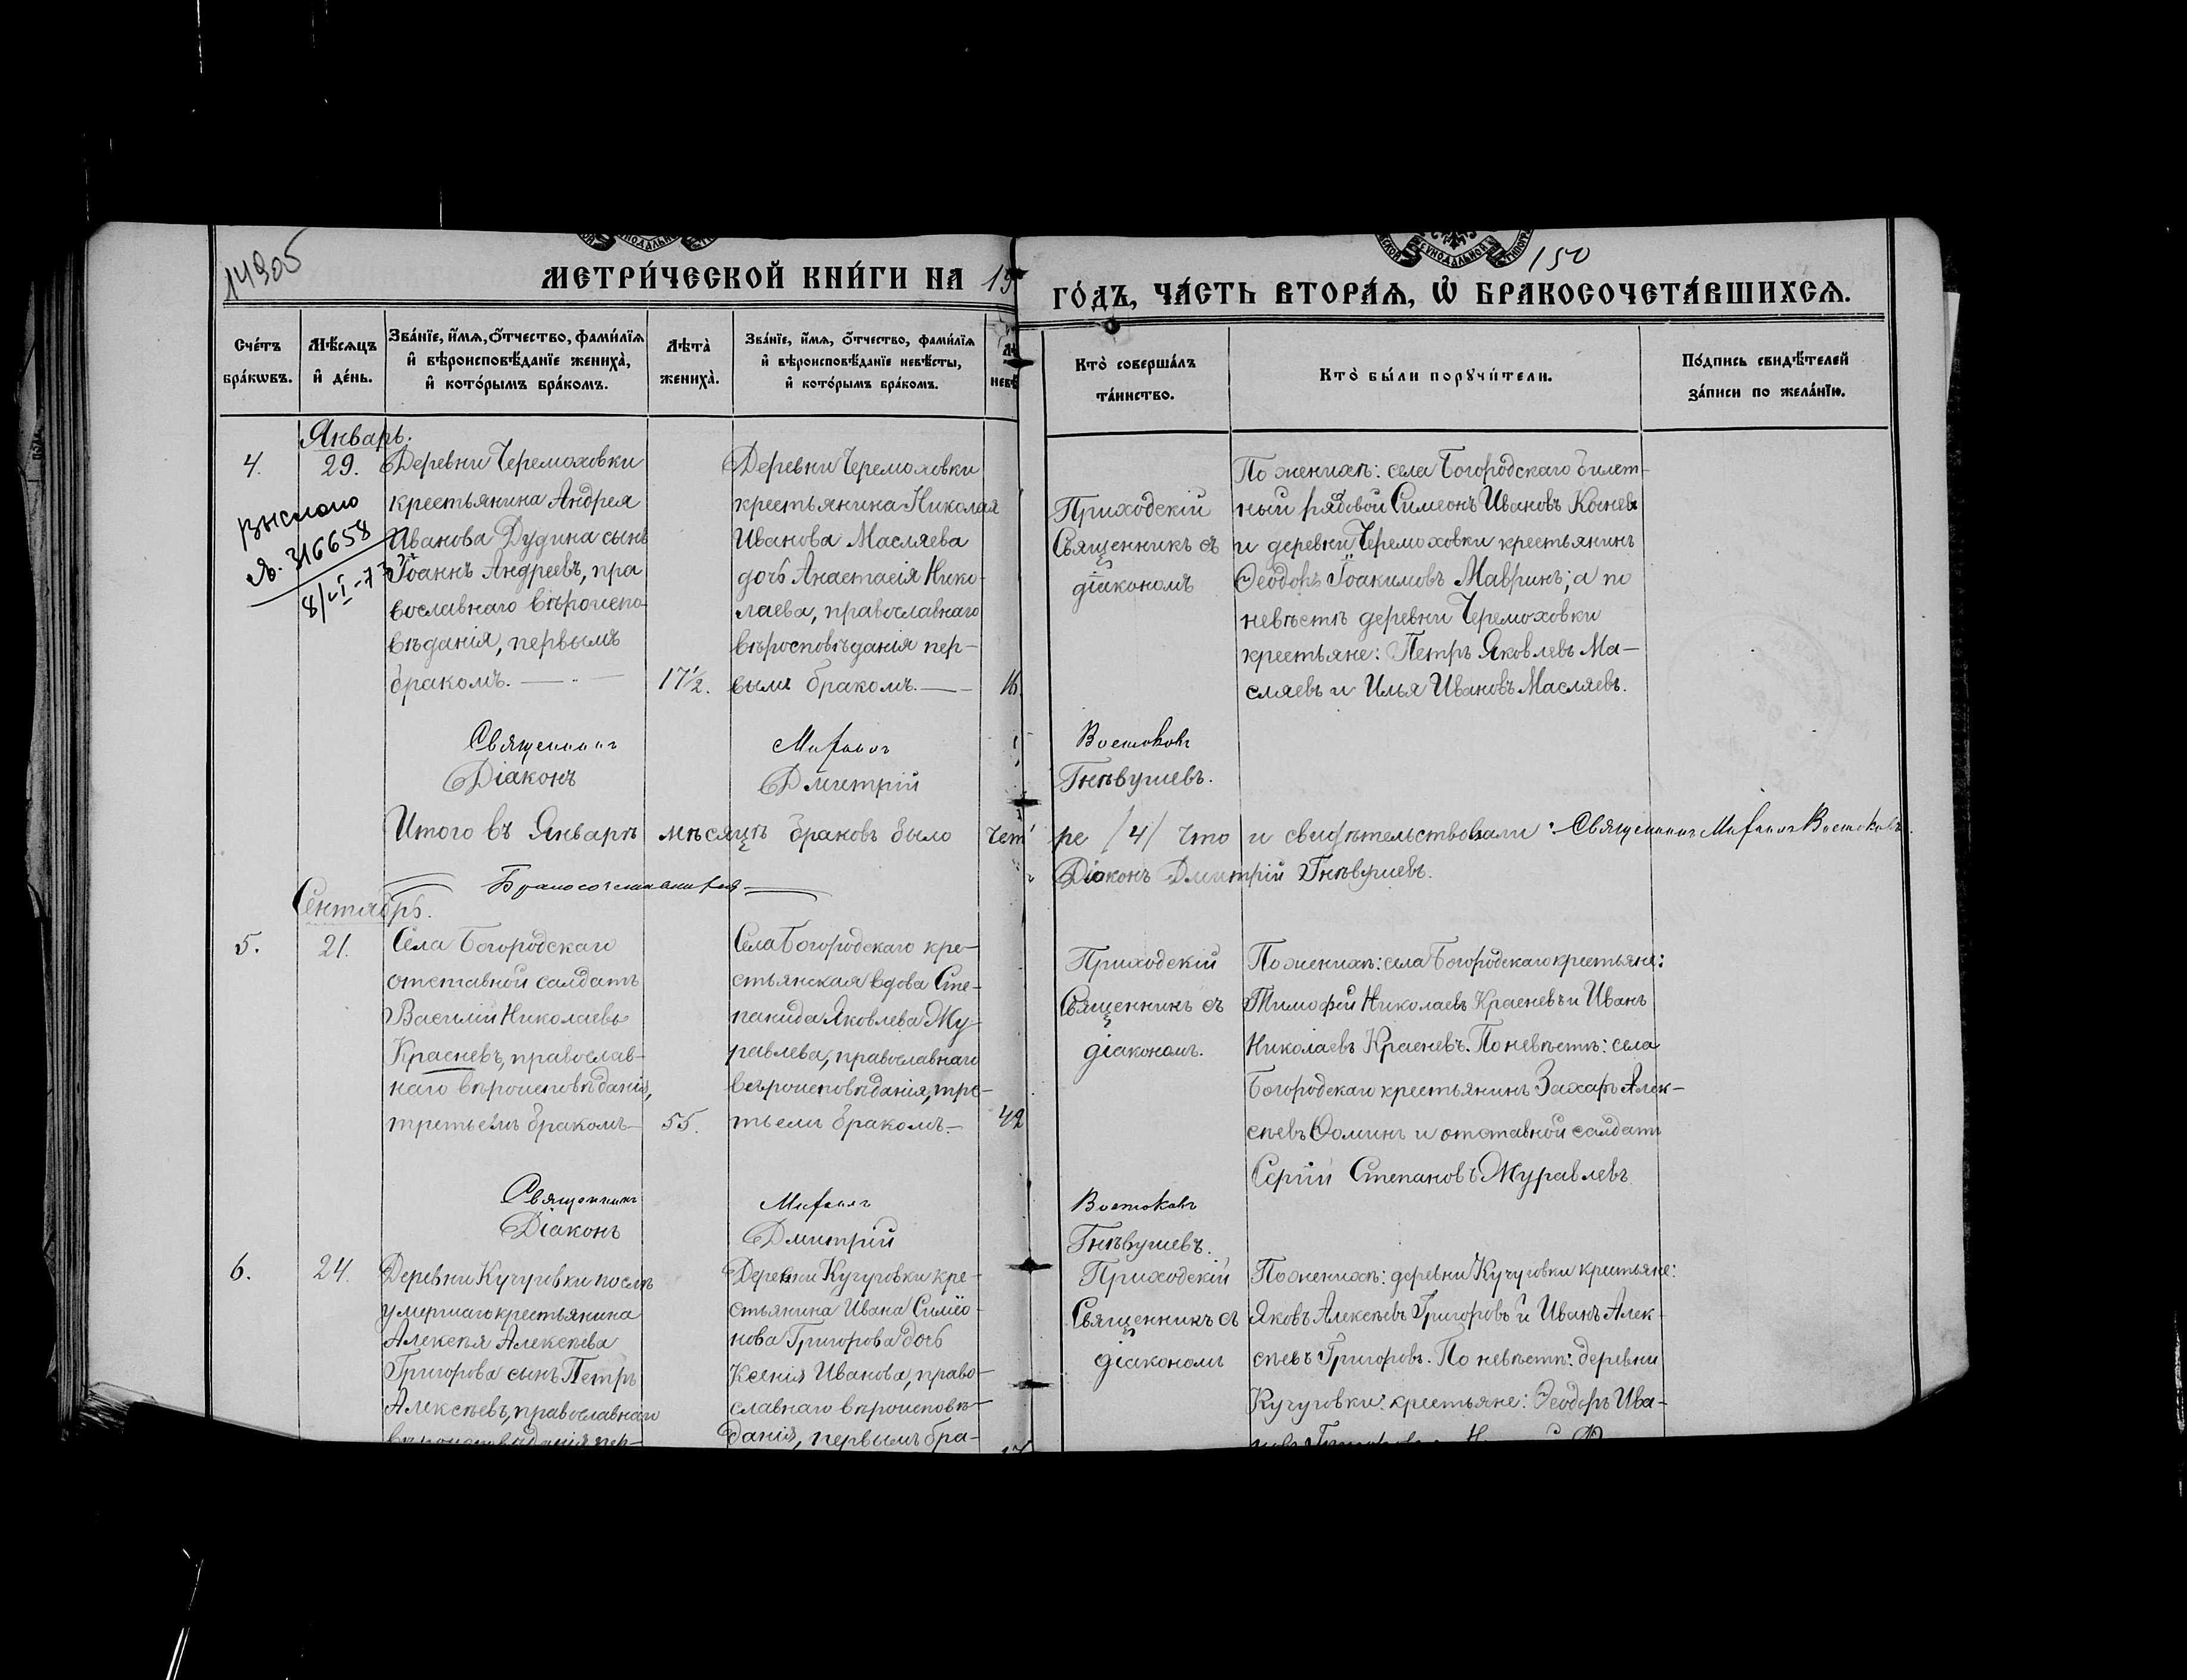 14905
150
МЕТРИ́ЧЕСКОЙ КНИ́ГИ НА 19
ГО́ДЪ, ЧА́СТЬ ВТОРА́Ѧ, Ѡ҆ БРАКОСОЧЕТА́ВШИХСѦ.
Сче́тъ бра́кѡвъ.
Мѣ́сѧцъ и҆ де́нь.
Зва́нїе, и҆́мѧ, ѻ҆́тчество, фами́лїѧ и҆ вѣроисповѣ́данїе жениха̀, и҆ кото́рымъ бра́комъ.
Лѣта̀ жениха̀.
Зва́нїе, и҆́мѧ, ѻ҆́тчество, фами́лїѧ и҆ вѣроисповѣ́данїе невѣ́сты, и҆ кото́рымъ бра́комъ.
Кто̀ соверша́лъ та́инство.
Кто̀ бы́ли порꙋчи́тели.
По́дпись свидѣ́телей за́писи по жела́нїю.
Январь.
4.
29.
выслано
Я. 316658
Деревни Черемоховки
крестьянина Андрея
Иванова Дудина сынъ
Іоаннъ Андреевъ, пра
вославнаго вѣроиспо
вѣданія, первымъ
бракомъ.
17½.
Деревни Черемоховки
крестьянина Николая
Иванова Масляева
дочь Анастасія Нико-
лаева, православнаго
вѣросповѣданія пер-
вымъ бракомъ.
16
Приходскій
Священникъ съ
діакономъ
По женихѣ: села Богородскаго билет-
ный рядовой Симеонъ Ивановъ
и деревни Черемоховки крестьянинъ
Ѳеодоръ Іоакимовъ Мавринъ; а по
невѣстѣ деревни Черемоховки
крестьяне: Петръ Яковлевъ Ма-
сляевъ и Илья Ивановъ Масляевъ.
Священникъ Михаилъ Востоковъ
Діаконъ Дмитрій Гнѣвушевъ.
Итого въ Январѣ мѣсяцѣ браковъ было чет ре /4/ что и свидѣтельствовали: Священникъ Михаилъ Востоковъ
Діаконъ Дмитрій Гнѣвушевъ.
Бракосочетавшихся
Сентябрь.
5.
21.
Села Богородскаго
отставной салдатъ
Василій Николаевъ
Красневъ, православ-
наго вѣроисповѣданія,
третьемъ бракомъ
55.
Села Богородскаго кре-
стьянская вдова Сте-
панида Яковлева Му-
равлева, православнаго
вѣроисповѣданія, тре-
тьемъ бракомъ.
42
Приходскій
Священникъ съ
діакономъ.
По женихѣ: села Богородскаго крестьяне:
Тимофей Николаевъ Красневъ и Иванъ
Николаевъ Красневъ. По невѣстѣ: села
Богородскаго крестьянинъ Захаръ Алек-
сѣевъ Ѳоминъ и отставной салдатъ
Сергій Степановъ Муравлевъ
Священникъ Михаилъ Востоковъ
Діаконъ Дмитрій Гнѣвушевъ.
6.
24.
Деревни Кучуговки послѣ
умершаго крестьянина
Алексѣя Алексѣева
Григорова сынъ Петръ
Алексѣевъ, православнаго
вѣроисповѣданія пер-
Деревни Кучуговки кре-
стьянина Ивана Симео-
нова Григорова дочь
Ксенія Иванова, право-
славнаго вѣроисповѣ-
данія, первымъ бра-
Приходскій
Священникъ съ
діакономъ
По женихѣ: деревни Кучуговки крестьяне:
Яковъ Алексѣевъ Григоровъ и Иванъ Алек-
сѣевъ Григоровъ. По невѣстѣ: деревни
Кучуговки крестьяне: Ѳеодоръ Ива-